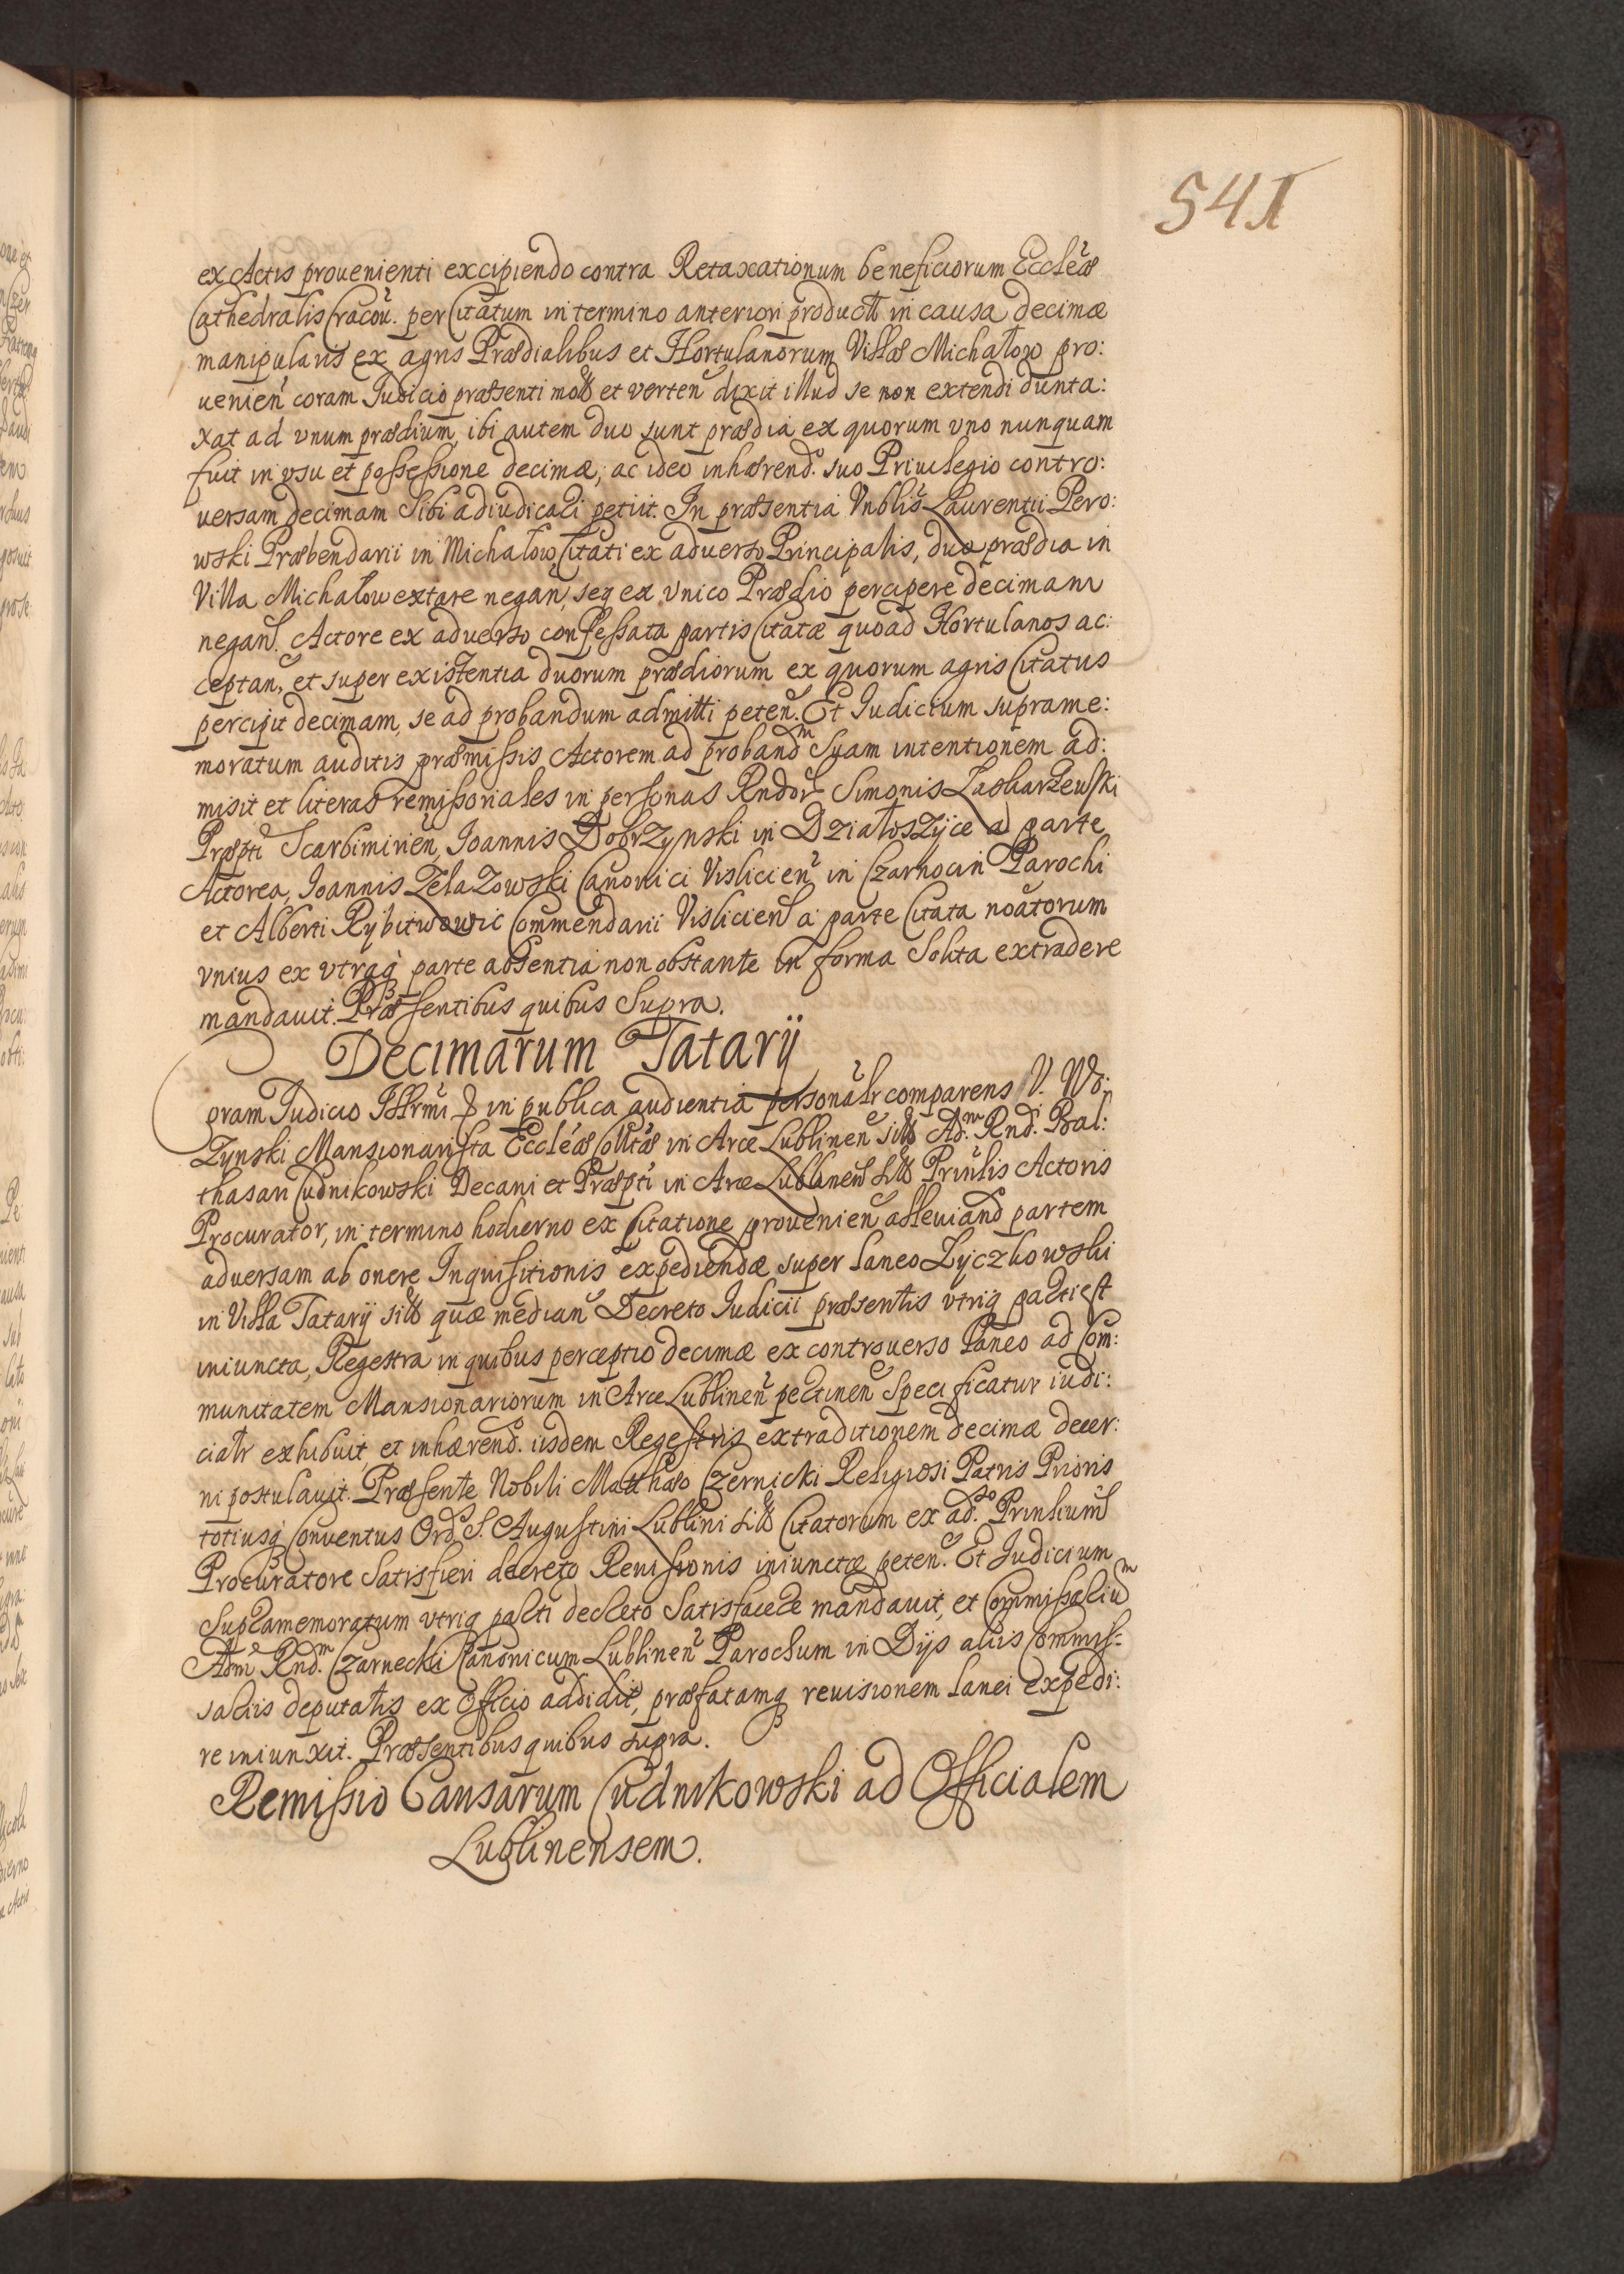 541
ex Actis prouenienti excipiendo contra Retaxationum beneficiorum Eccleæ
Cathedralis Cracou. per Citatum in termino anteriori product in causa decimæ
manipularis ex agris Prædialibus et Hortulanorum Villæ Michałow pro:
uenien coram Iudicio præsenti mot et verten dixit illud se non extendi dunta:
xat ad vnum prædium, ibi autem duo sunt prædia ex quorum vno nunquam
fuit in vsu et possessione decimæ, ac ideo inhærend. suo Priuilegio contro:
uersam decimam Sibi adiudicari petiit. In præsentia Vnblis Laurentii Pero:
wski Præbendarii in Michałow, Citati ex aduerso Principalis, duo prædia in
Villa Michałow extare negan, seq ex vnico Prædio percipere decimam
negan. Actore ex aduerso confessata partis Citatæ quoad Hortulanos ac:
ceptan, et super existentia duorum prædiorum ex quorum agris Citatus
percipit decimam, se ad probandum admitti peten. Et Iudicium suprame:
moratum auditis præmissis Actorem ad proband Suam intentionem ad:
misit et literas remissoriales in personas Rndor Simonis Zacharzewski
Præpti Scarbimirien, Ioannis Dobrzynski in Działoszyce a parte
Actorea, Ioannis Zelazowski Canonici Vislicien in Czarnocin Parochi
et Alberti Rybitwowic Commendarii Vislicien a parte Citata noatorum
vnius ex vtraq parte absentia non obstante in forma Solita extradere
mandauit. Præsentibus quibus Supra.
Decimarum Tatarÿ
Coram Iudicio Illrmi in publica audientia personalr comparens V. Wo:
Zynski Mansionarista Eccleæ Colltæ in Arce Lublinen sitt Ad. Rnd. Bal:
thasari Cudnikowski Decani et Præpti in Arce Lublinen sitt Prinlis Actoris
Procurator, in termino hodierno ex Citatione prouenien alleuiand partem
aduersam ab onere Inquisitionis expediendæ super laneo Zyczkowski
in Villa Tatarÿ sitt quæ median Decreto Iudicii præsentis vtriq parti est
iniuncta, Regestra in quibus perceptio decimæ ex controuerso laneo ad Com:
munitatem Mansionariorum in Arce Lublinen pertinen Specificatur iudi:
cialr exhibuit, et inhærend. iisdem Regestris extraditionem decimæ decer:
ni postulauit. Præsente Nobili Matthæo Czernicki Religiosi Patris Prioris
totiusq Conuentus Ord. S. Augustini Lublini sitt Citatorum ex ad.so Prinlium
Procuratore Satisfieri decreto Reuisionis iniunctæ peten. Et Iudicium
Supramemoratum vtriq parti decreto Satisfacere mandauit, et Commissariu
Adm Rnd.m Czarnecki Canonicum Lublinen Parochum in Dÿs aliis Commis:
sariis deputatis ex Officio addidit, præfatamq reuisionem lanei expedi:
re iniunxit. Præsentibus quibus supra.
Remissio Causarum Cudnikowski ad Officialem
Lublinensem.